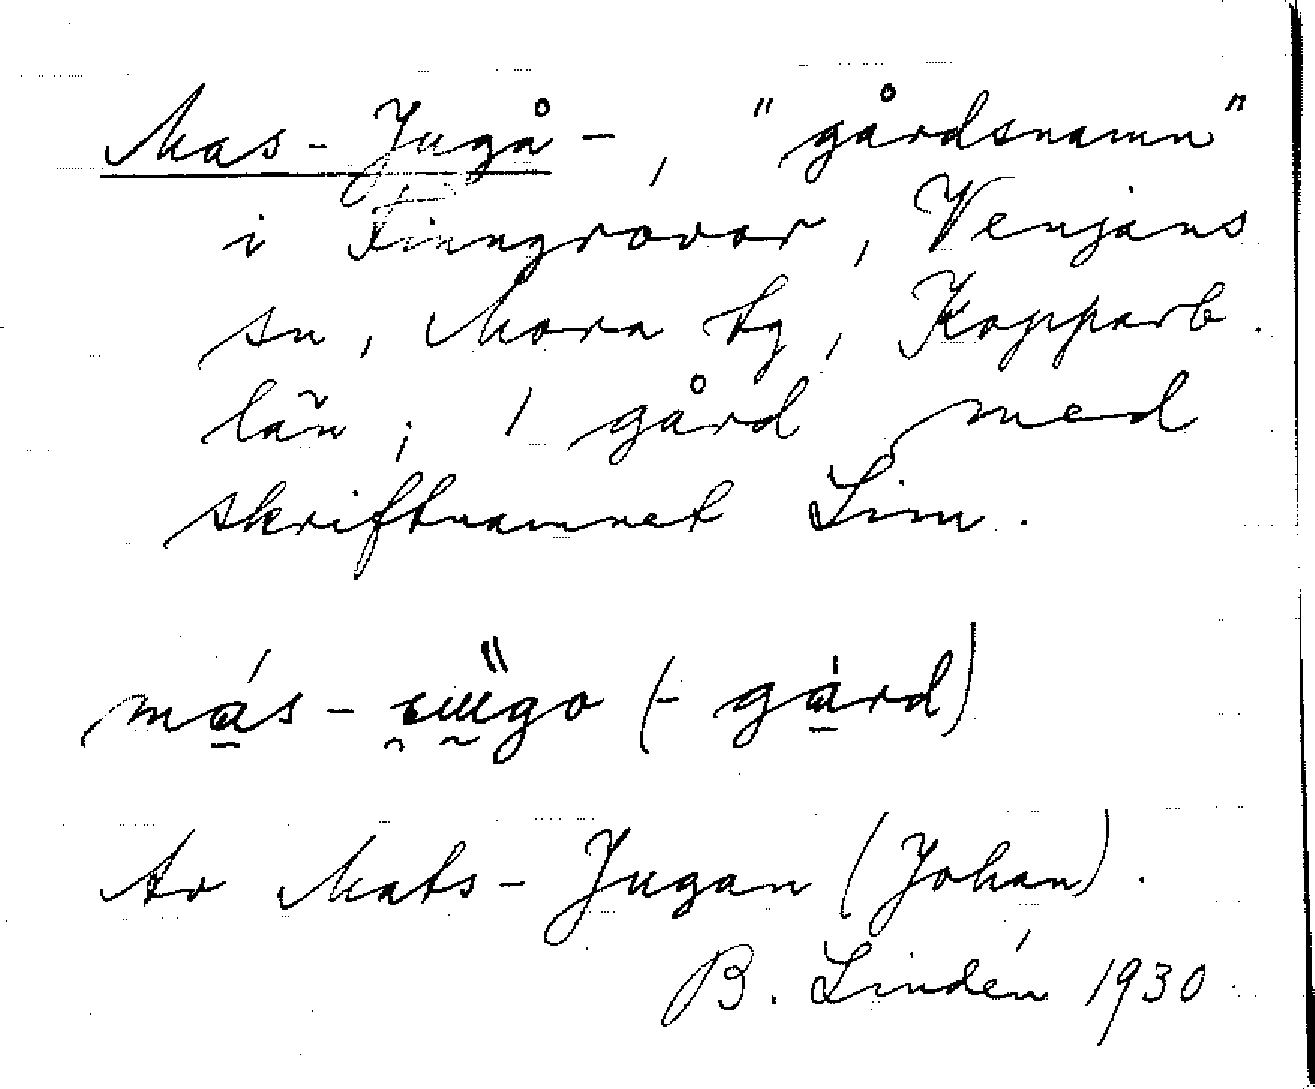 Mas-Jugå-, "gårdsnamn"
i Finngruvor, Venjans
sn, Mora tg, Kopparb.
län; 1 gård med
skriftnamnet Lim.
más- go (-gård)
Av Mats-Jugan (Johan).
B. Lindén 1930